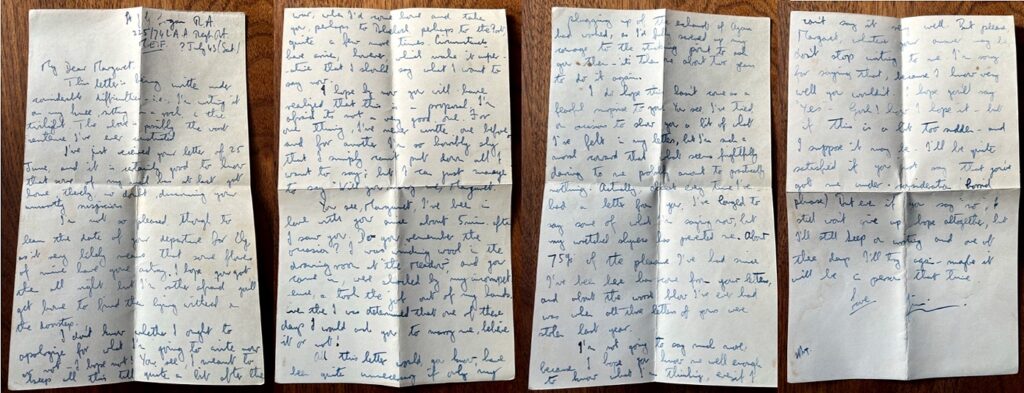 R.A.
My Dear Margaret,
This letter is being written under
considerable difficulties - i.e. I'm writing it
on my knee, sitting on a rock in the
twilight. This alone - possibly the most
sentence I've ever
I've just received your letter of 25
June, and it is very good to know
that are of mine has at last got
home
unworthy suspicions
I'm not so pleased though to
learn the date of your departure for
as it very likely means that some flowers
of mine have gone astray. I hope you got
them all right but I'm rather afraid you'll
get home to find them lying withered on
the doorstep.
I don't know whether I ought to
apologise for what I'm going to write now
or not - I hope not! You see, I meant to
keep all this till quite a bit after the
war, when I'd come home and take
you, perhaps to perhaps to the
quite a few more times. Circumstances
have arisen however which make it
that I should say what I want to
say now.
I hope by now you will have
realised that this is a proposal. I'm
afraid it's not a very good one. For
one thing, I've never written one before,
and for another I'm so horribly shy
that I simply can't put down all I
want to say; but I can just manage
to say "Will you marry me Margaret"
You see, Margaret, I've been in
love with you since about 5 min. after
I saw you. Do you remember the
occasion? I was winding wool in the
drawing room at the and you
came in, were shocked by my incompet-
ence, & took the job out of my hands.
I was determined that one of these
days I would ask you to marry me, believe
it or not!
All this letter would, you know, have
been quite unnecessary if only my
plugging up of the exhaust of
had worked, as I'd screwed up my
courage to the sticking point to ask
you then - it's taken me about two years
to do it again.
I do hope this doesn't come as a
fearful surprise to you. You see, I've tried
on occasion to show you a bit of what
I've felt in my letters, but I'm such a
moral coward that what seems frightfully
daring to me probably amounts to practically
nothing. Actually, every time I've
had a letter from you, I've longed to
say some of what I'm saying now, but
my wretched shyness has prevented me. About
75% of the pleasure I've had since
I've been here has come from your letters,
and about the worst blow I've ever had
was when all three letters of yours were
stolen last year.
I'm not going to say much more
because I hope you know me well enough
to know what I'm thinking, even if I
can't say it very well. But please
Margaret, whatever your answer may be
don't stop writing to me (I'm sorry
for saying that, because I know very
well you wouldn't). I hope you'll say
"Yes" - Gosh! how I hope it - but
if this is a bit too sudden - and
I suppose it may be - I'll be quite
satisfied if you'll just say that you've
got me under consideration (horrid
phrase). But even if you say "no", I
still won't give up hope altogether, but
I'll still keep on writing and one of
these days I'll try again - maybe it
will be in person that time.
Love
Jim.